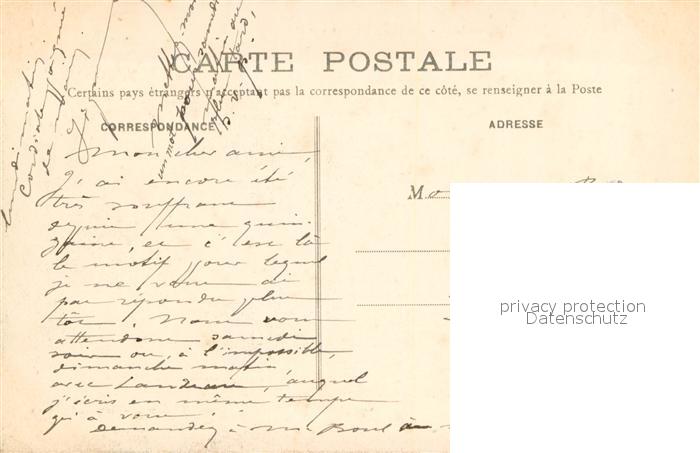 CARTE POSTALE
Certains pays étrangers n'acceptant pas la correspondance de ce côté, se renseigner à la Poste
CORRESPONDANCE
ADRESSE
Mon cher ami,
J'ai encore été
très souffrant
depuis une quin-
zaine, et c'est là
le motif pour lequel
je ne vous ai
pas répondu plus
tôt. Nous vous
attendons samedi
soir ou, à l'impossible,
dimanche matin,
avec Landeau, auquel
j'écris en même temps
qu'à vous.
Demandez à
lundi matin
Cordiale
un mot pour samedi
plus tard,
privacy protection
Datenschutz